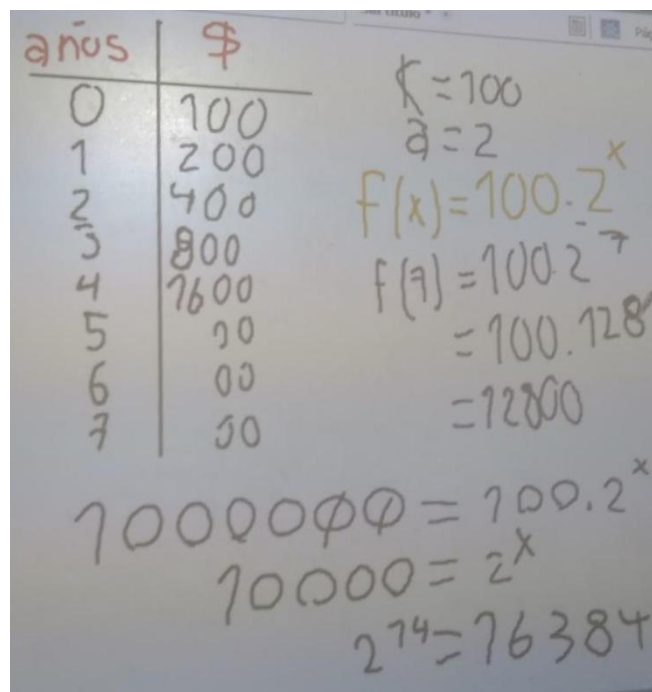 años $
0 100
1 200
2 400
3 800
4 1600
5 00
6 00
7 00
K=100
a=2
f(x)=100.2^x
f(7)=100.2^7
=100.128
=12800
1000000=100.2^x
10000=2^x
2^14=16384